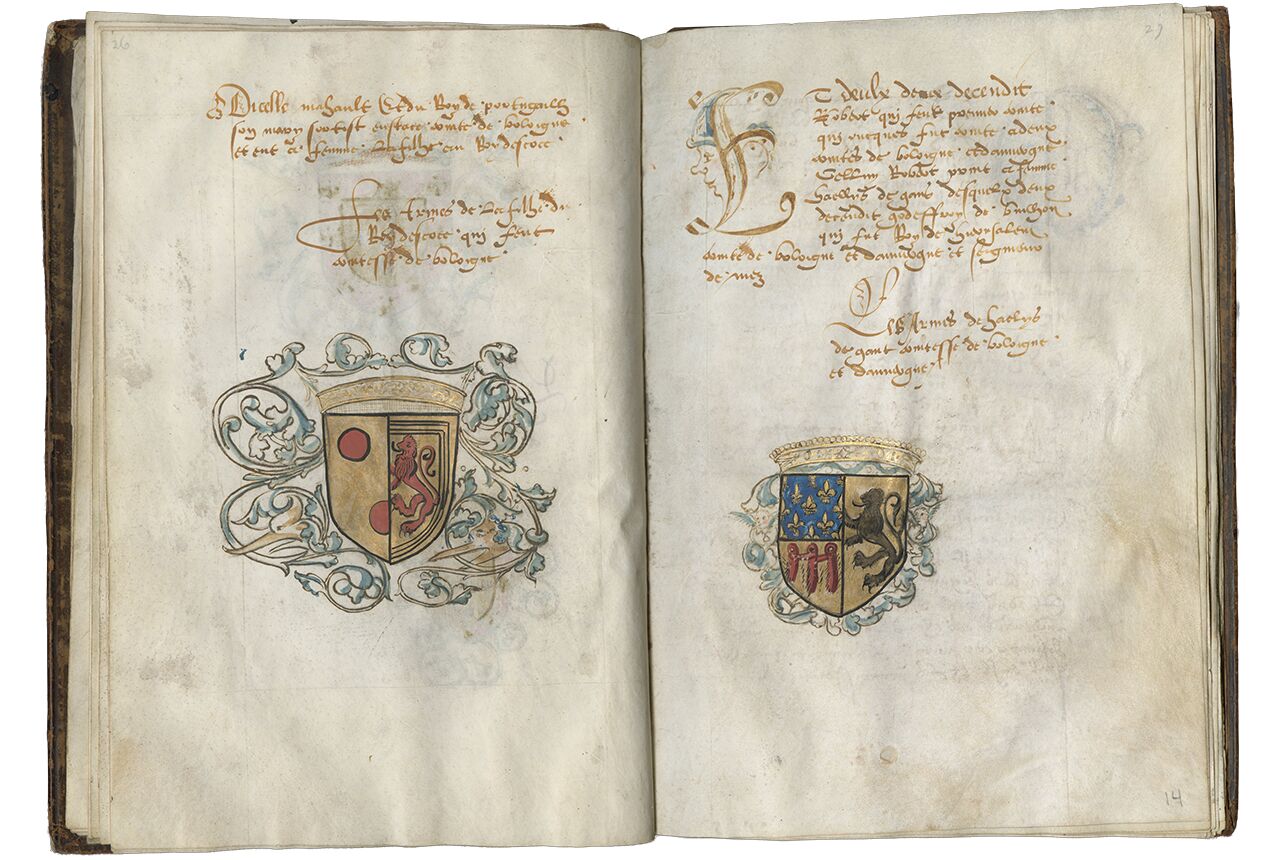 26
Dicelle mahault Et du Roy de portugailh
son mary sortist eustace comte de boloigne
et eut a femme La filhe au Roy descoce
Les Armes de La filhe du
Roy descoce qui feut
comtesse de boloigne
27
ET deulx deux decendit
Robert qui feut premier comte
qui oncques fut comte a deux
comtés de boloigne et dauvergne
Robert print a femme
haelys de gant desqueulx deux
decendit godeffroy de builhon
qui fut Roy de iherusalem
comte de boloigne et dauvergne et seigneur
de mez
Les Armes de haelys
de gant comtesse de boloigne
et dauvergne
14